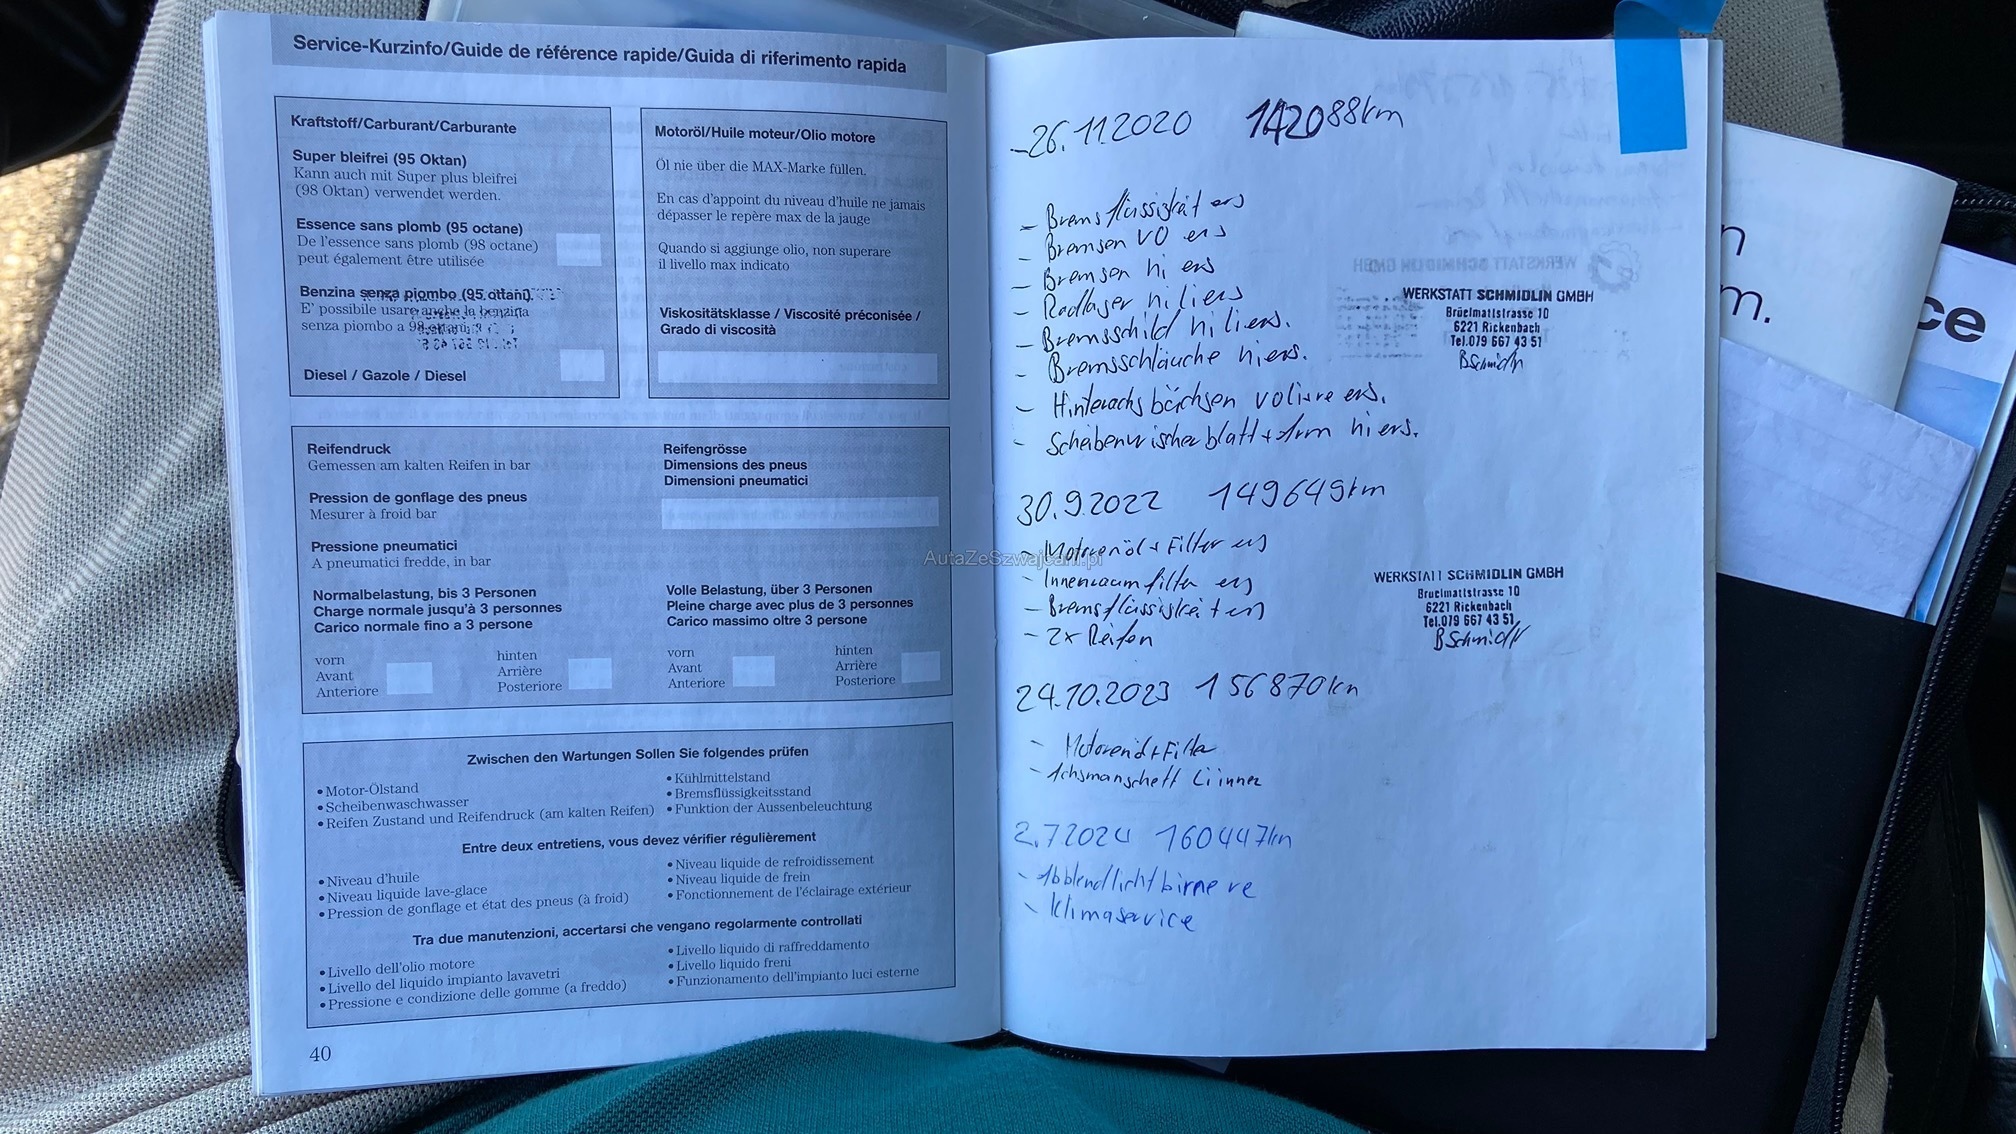 Service-Kurzinfo/Guide de référence rapide/Guida di riferimento rapida
Kraftstoff/Carburant/Carburante
Super bleifrei (95 Oktan)
Kann auch mit Super plus bleifrei
(98 Oktan) verwendet werden.
Essence sans plomb (95 octane)
De l'essence sans plomb (98 octane)
peut également être utilisée
Benzina senza piombo (95 ottani).
E' possibile usare anche la benzina
senza piombo a 98 ottani.
Diesel / Gazole / Diesel
Motoröl/Huile moteur/Olio motore
Öl nie über die MAX-Marke füllen.
En cas d'appoint du niveau d'huile ne jamais
dépasser le repère max de la jauge
Quando si aggiunge olio, non superare
il livello max indicato
Viskositätsklasse / Viscosité préconisée /
Grado di viscosità
Reifendruck
Gemessen am kalten Reifen in bar
Pression de gonflage des pneus
Mesurer à froid bar
Pressione pneumatici
A pneumatici fredde, in bar
Reifengrösse
Dimensions des pneus
Dimensioni pneumatici
Normalbelastung, bis 3 Personen
Charge normale jusqu'à 3 personnes
Carico normale fino a 3 persone
Volle Belastung, über 3 Personen
Pleine charge avec plus de 3 personnes
Carico massimo oltre 3 persone
vorn
Avant
Anteriore
hinten
Arrière
Posteriore
vorn
Avant
Anteriore
hinten
Arrière
Posteriore
Zwischen den Wartungen Sollen Sie folgendes prüfen
• Motor-Ölstand
• Scheibenwaschwasser
• Reifen Zustand und Reifendruck (am kalten Reifen)
• Kühlmittelstand
• Bremsflüssigkeitsstand
• Funktion der Aussenbeleuchtung
Entre deux entretiens, vous devez vérifier régulièrement
• Niveau d'huile
• Niveau liquide lave-glace
• Pression de gonflage et état des pneus (à froid)
• Niveau liquide de refroidissement
• Niveau liquide de frein
• Fonctionnement de l'éclairage extérieur
Tra due manutenzioni, accertarsi che vengano regolarmente controllati
• Livello dell'olio motore
• Livello del liquido impianto lavavetri
• Pressione e condizione delle gomme (a freddo)
• Livello liquido di raffreddamento
• Livello liquido freni
• Funzionamento dell'impianto luci esterne
40
26.11.2020 142088km
- Bremsflüssigkeit ers
- Bremsen vo ers
- Bremsen hi ers
- Radlager hi li ers
- Bremsschild hi li ers.
- Bremsschläuche hi ers.
- Hinterachsbüchsen vo li+re ers.
- Scheibenwischerblatt + Arm hi ers.
WERKSTATT SCHMIDLIN GMBH
Brüelmattstrasse 10
6221 Rickenbach
Tel.079 667 43 51
BSchmidli
30.9.2022 149649km
- Motorenöl + Filter ers
- Innenraumfilter ers
- Bremsflüssigkeit ers
- 2x Reifen
WERKSTATT SCHMIDLIN GMBH
Brüelmattstrasse 10
6221 Rickenbach
Tel.079 667 43 51
BSchmidli
24.10.2023 156870km
- Motorenöl + Filter
- Achsmanschett li inner
2.7.2024 160447km
- Abblendlichtbirne re
- Klimaservice
AutaZeSzwajcarii.pl
n
m.
ce